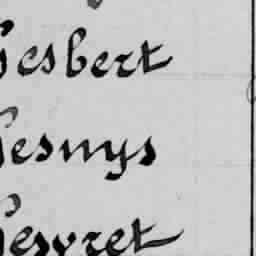 Gesbert
Gesnys
Gesvret